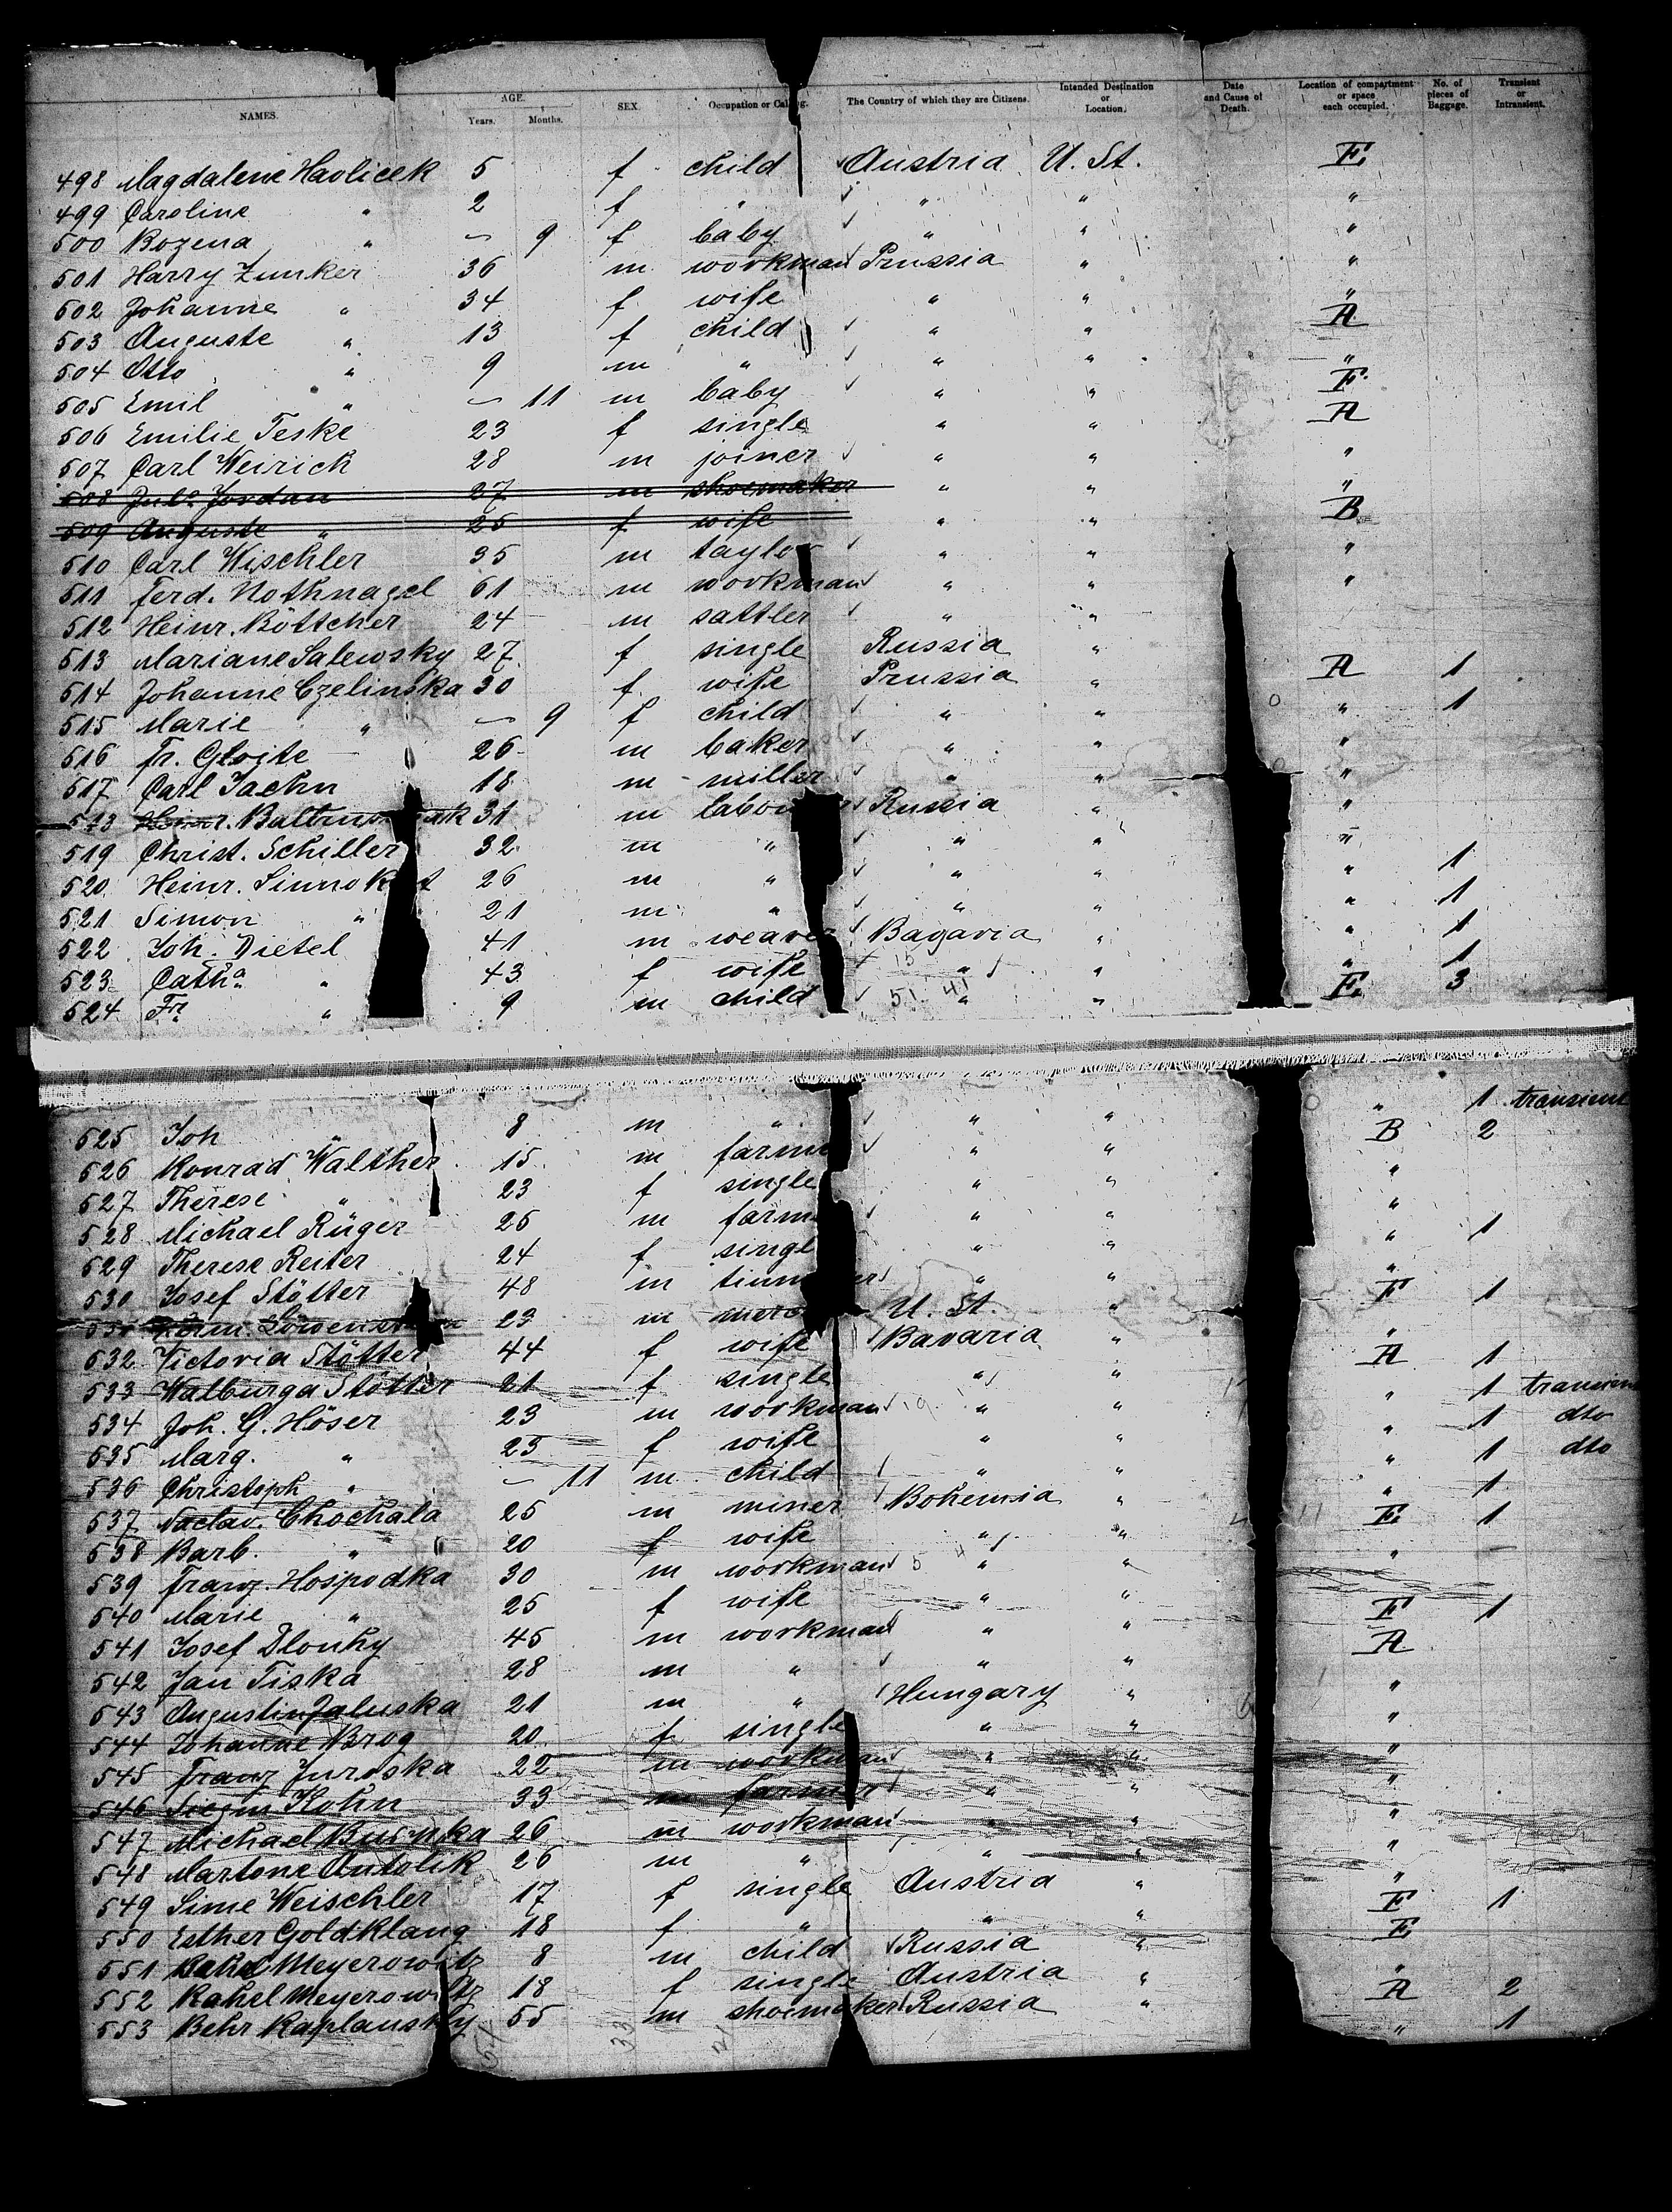 NAMES. AGE. Years. Months. SEX. Occupation or Calling. The Country of which they are Citizens. Intended Destination or Location. Date and Cause of Death. Location of compartment or space each occupied. No. of pieces of Baggage. Transient or Intransient.
498 Magdalene Havlicek 5 f child Austria U. St. E
499 Caroline " 2 f " " " "
500 Bozena " — 9 f baby " " "
501 Harry Zunker 36 m workman Prussia " "
502 Johanne " 34 f wife " " "
503 Auguste " 13 f child " " A
504 Otto " 9 m " " " "
505 Emil " — 11 m baby " " F
506 Emilie Teske 23 f single " " A
507 Carl Weirich 28 m joiner " " "
508 Jul. Jordan 27 m shoemaker " " "
509 Auguste " 25 f wife " " B
510 Carl Wischler 35 m taylor " " "
511 Ferd. Nothnagel 61 m workman " " "
512 Heinr. Böttcher 24 m sattler " "
513 Mariane Salewsky 27 f single Russia " A 1
514 Johanne Czelinska 30 f wife Prussia " " 1
515 Marie " — 9 f child " " "
516 Fr. Gloite 26 m baker " " "
517 Carl Jachn 18 m miller " " "
31 m Russia " "
519 Christ. Schiller 32 m " " " " 1
520 Heinr. 26 m " " " " 1
521 Simon " 21 m " " " " 1
522 Joh. Dietel 41 m weaver Bagaria " " 1
523 Catha " 43 f wife " " E 3
524 Fr. " 9 m child " "
525 Joh " 8 m " " " " 1 transient
526 Konrad Walther 15 m farmer " " B 2
527 Therese " 23 f single " " "
528 Michael Rüger 25 m farm " " "
529 Therese Reiter 24 f singl " " " 1
530 Josef Stötter 48 m " " "
23 m U. St. " F 1
532 Victoria Stötter 44 f wife Bavaria " "
533 Walburga Stötter 21 f single " " A 1
534 Joh. G. Höser 23 m workman " " " 1 transient
535 Marg. " 23 f wife " " " 1 dto
536 Christoph " — 11 m child " " " 1 dto
537 Vaclav. Chochala 25 m miner Bohemia " " 1
538 Barb. " 20 f wife " " E 1
539 Franz Hospodka 30 m workman " " "
540 Marie " 25 f wife " "
541 Josef Dlouhy 45 m workman " " F 1
542 Jan Tiska 28 m " " " A
543 Augustin Zaluska 21 m " Hungary " "
544 Johanne Brog 20 f single " " "
545 Franz Juroska 22 m workman " " "
546 Siegm Kohn 33 m farmer " " "
547 Michael 26 m workman " " "
548 Martone Antolik 26 m " " " "
549 Sime Weischler 17 f single Austria " "
550 Esther Goldklang 18 f " " " F 1
551 Meyerowitz 8 m child Russia " E
552 Rahel Meyerowitz 18 f single Austria " " 
553 Behr Kaplansky 55 m shoemaker Russia " A 2
" 1